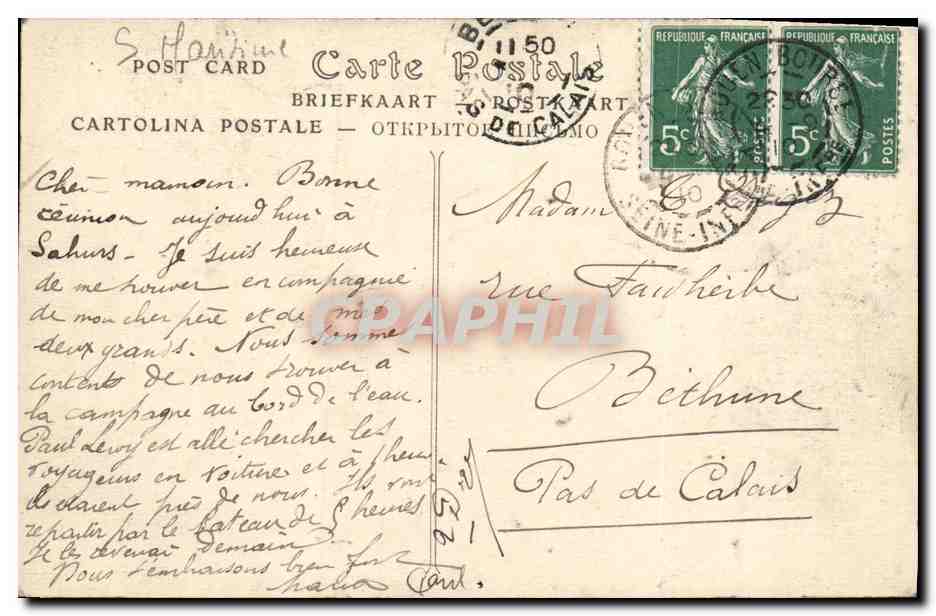 S. Maritime
POST CARD Carte Postale
BRIEFKAART — POSTKAART
CARTOLINA POSTALE — ОТКРЫТОЕ ПИСЬМО
11 50
PAS DE CALAIS
REPUBLIQUE FRANÇAISE
5c
POSTES
REPUBLIQUE FRANÇAISE
5c
POSTES
ROUEN
SEINE-INF
Cher maman. Bonne
réunion aujourd'hui à
Sahurs - Je suis heureuse
de me trouver en compagnie
de mon cher père et de mes
deux grands. Nous sommes
contents de nous trouver à
la campagne au bord de l'eau.
Paul Leroy est allé chercher les
voyageurs en voiture et à
près de nous. Ils vont
repartir par le bateau de 5 heures
Je les reverrai demain
Nous t'embrassons bien fort
Madame
rue Faidherbe
Béthune
Pas de Calais
CPAPHIL